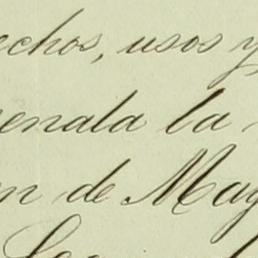 echos, usos y
enala la
n de May